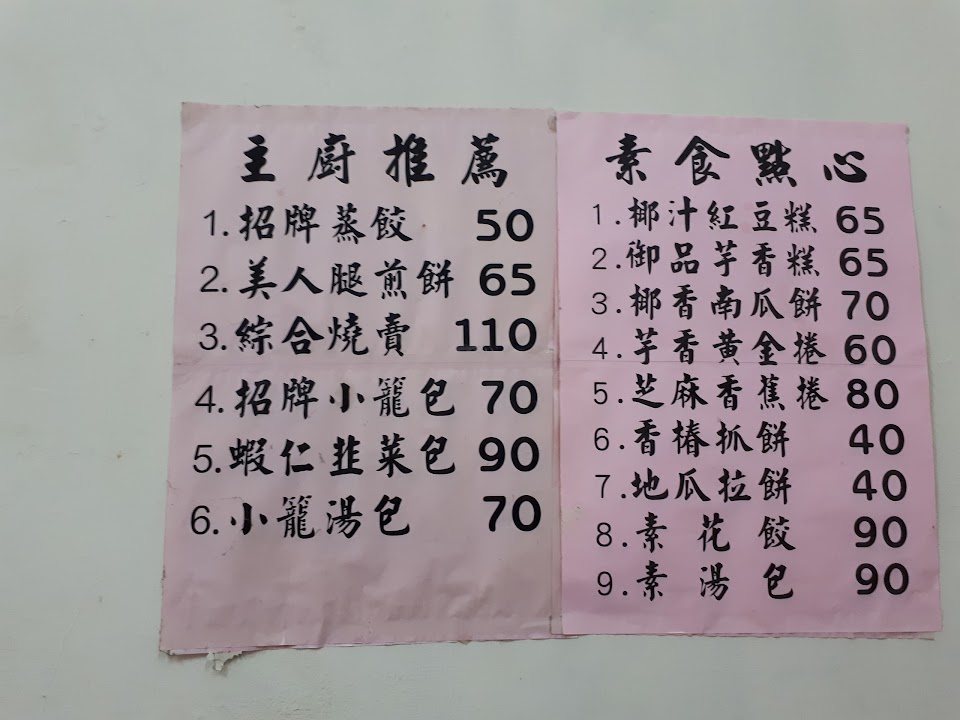 主廚推薦
1.招牌蒸餃 50
2.美人腿煎餅 65
3.綜合燒賣 110
4.招牌小籠包 70
5.蝦仁韭菜包 90
6.小籠湯包 70
素食點心
1.椰汁紅豆糕 65
2.御品芋香糕 65
3.椰香南瓜餅 70
4.芋香黃金捲 60
5.芝麻香蕉捲 80
6.香椿抓餅 40
7.地瓜拉餅 40
8.素花餃 90
9.素湯包 90